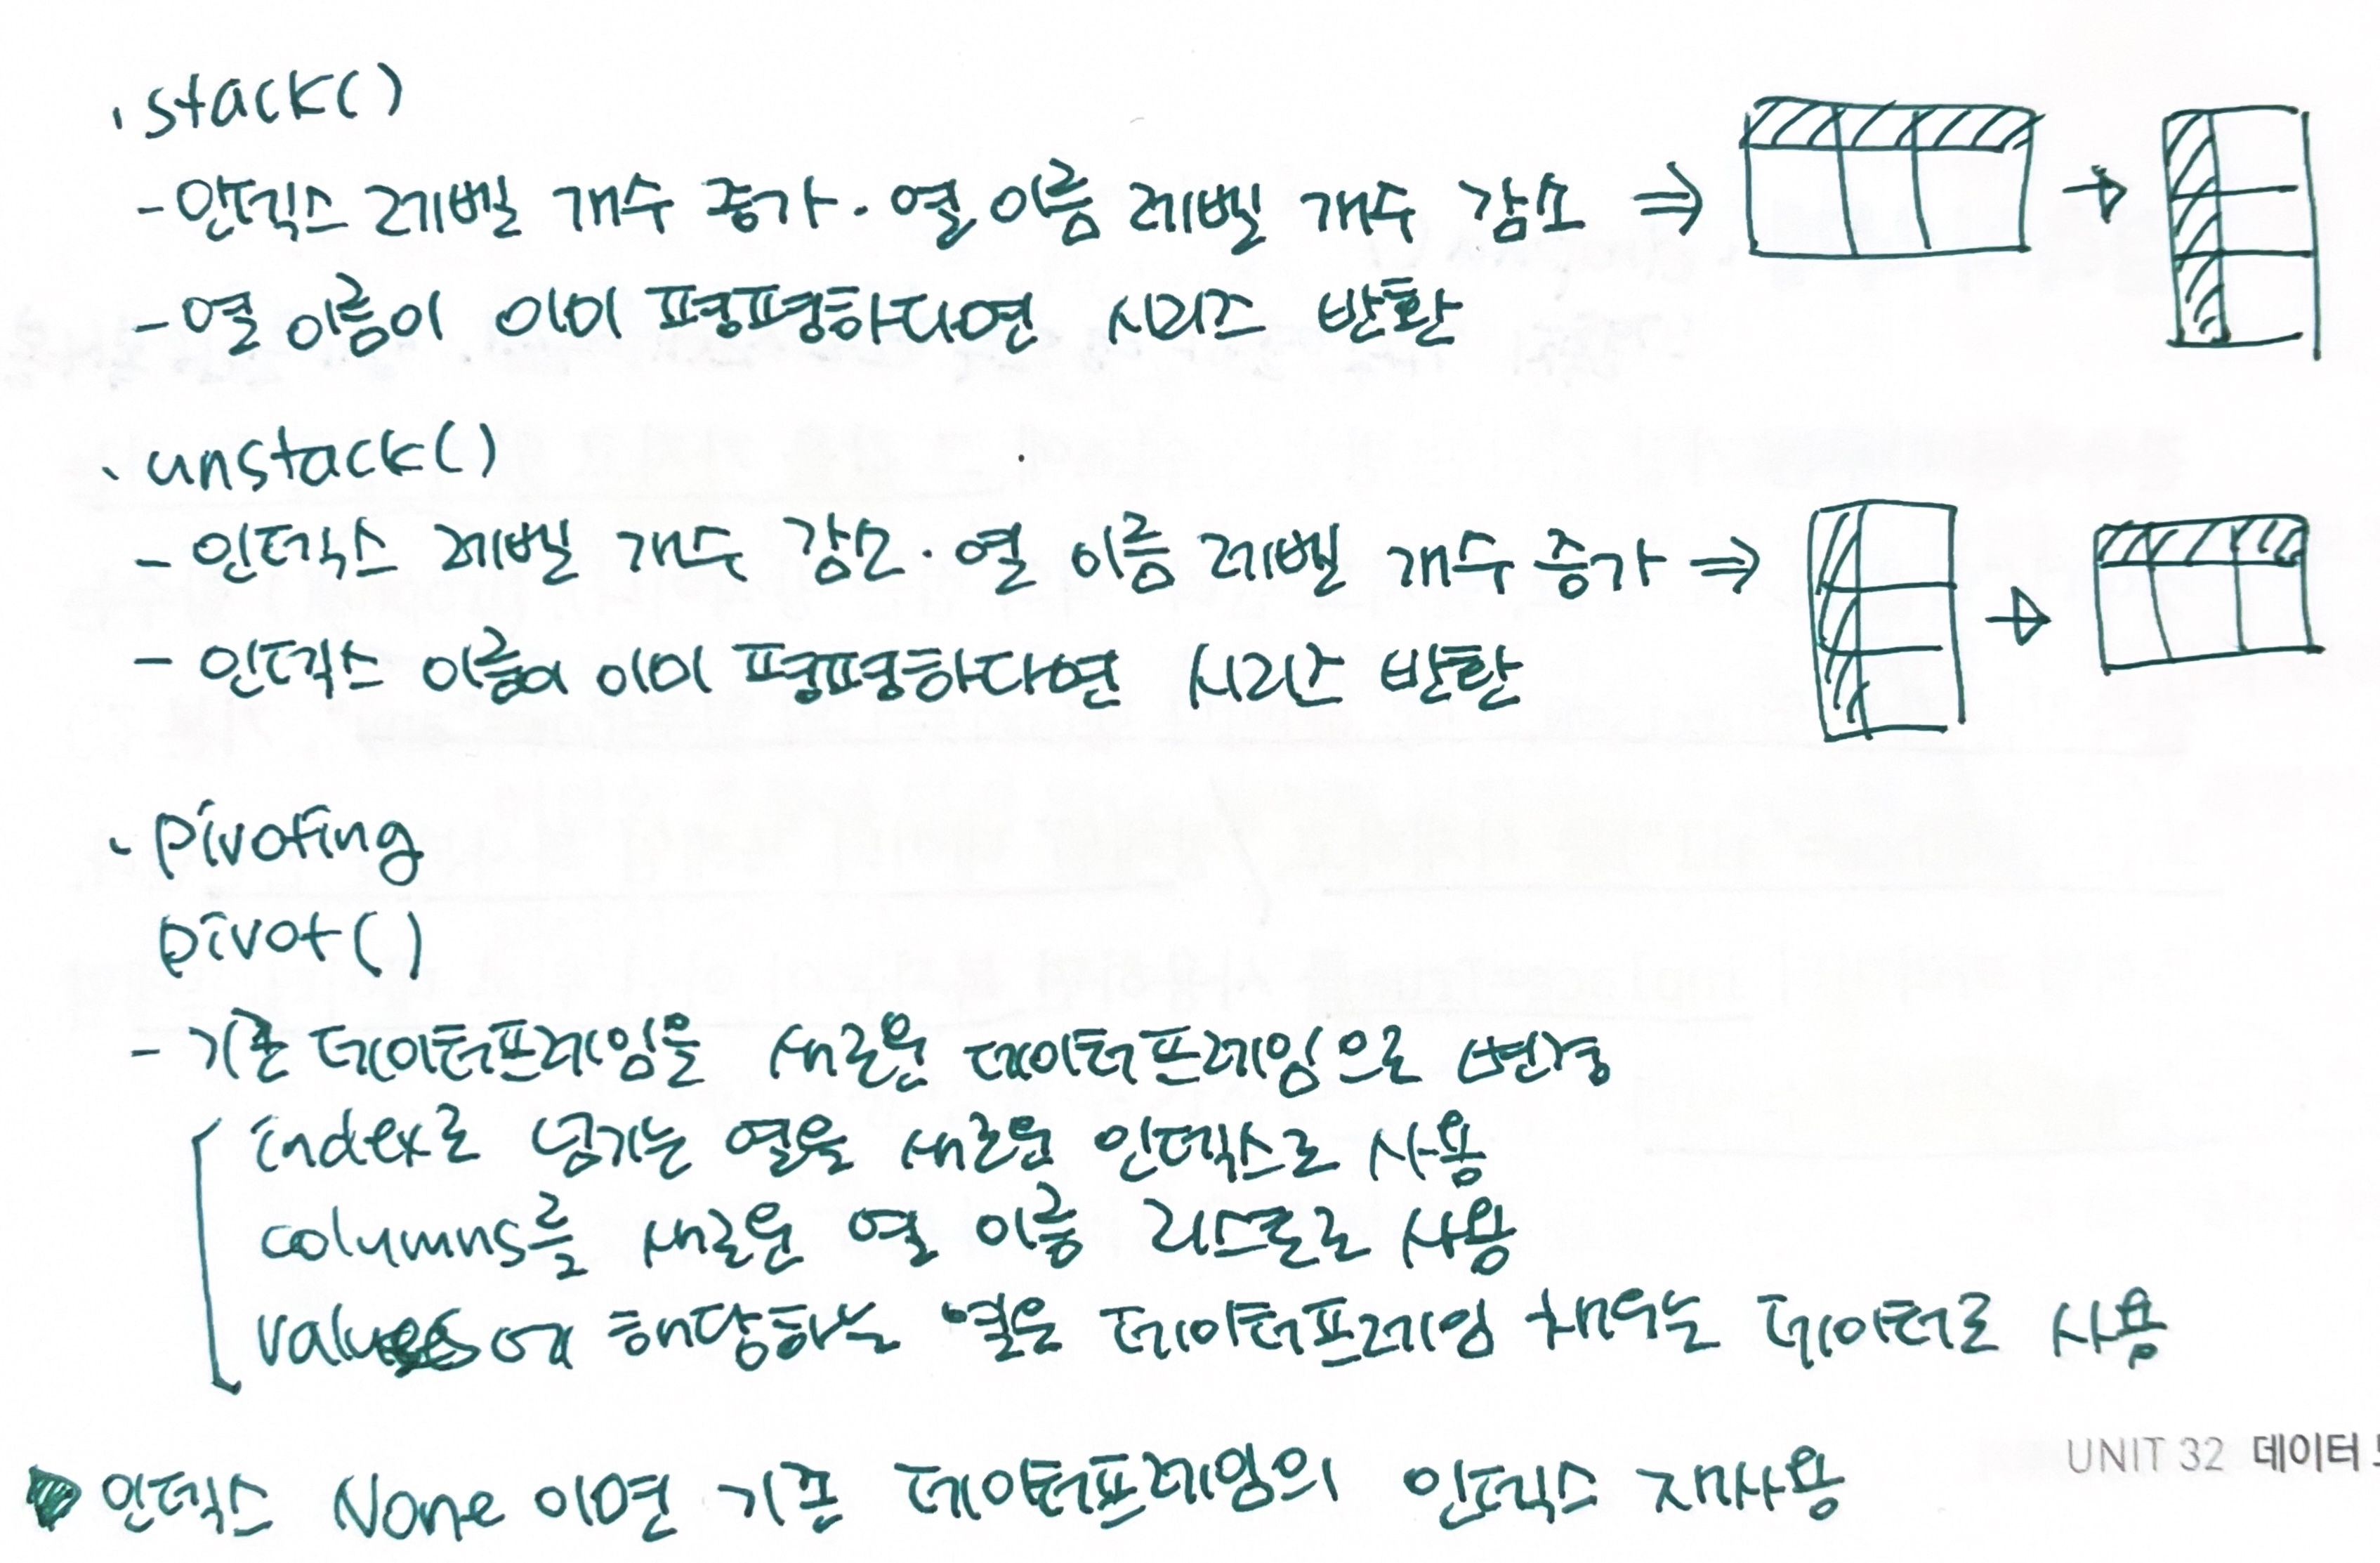 · stack()
- 인덱스 레벨 개수 증가 · 열 이름 레벨 개수 감소 ⇒
- 열 이름이 이미 평평하다면 시리즈 반환
· unstack()
- 인덱스 레벨 개수 감소 · 열 이름 레벨 개수 증가 ⇒
- 인덱스 이름이 이미 평평하다면 시리즈 반환
· pivoting
pivot()
- 기존 데이터프레임을 새로운 데이터프레임으로 변경
index로 넘기는 열을 새로운 인덱스로 사용
columns를 새로운 열 이름 리스트로 사용
values에 해당하는 열은 데이터프레임 채우는 데이터로 사용
UNIT 32 데이터
인덱스 None 이면 기존 데이터프레임의 인덱스 재사용